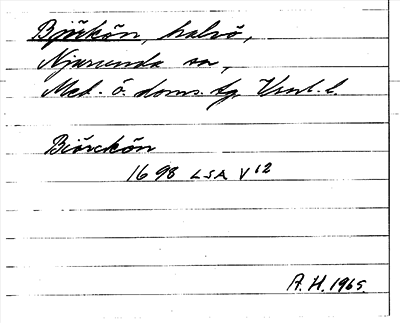 Björkön, halvö,
Njurunda sn,
Med. ö. doms. tg. Vnl. l.
Biörckön
1698 LSA V 12
A. H. 1965.